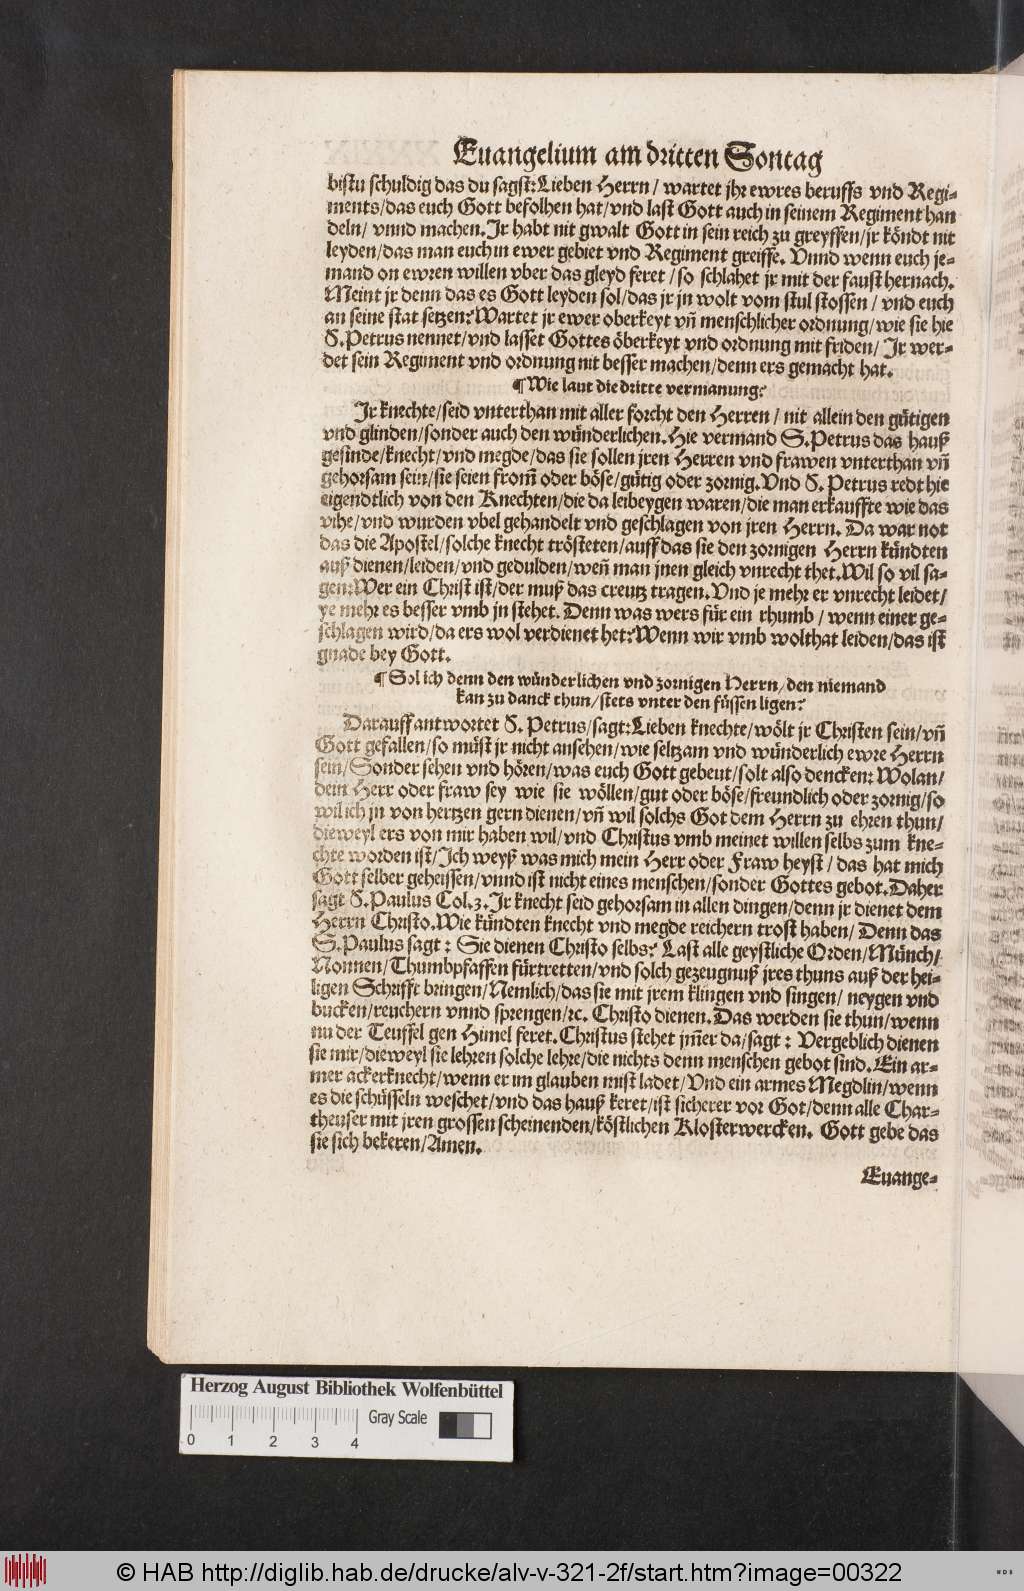 Euangelium am dritten Sontag
bistu schuldig das du sagst: Lieben Herrn / wartet jhr ewres beruffs vnd Regi-
ments/das euch Gott befolhen hat/vnd last Gott auch in seinem Regiment han
deln/ vnnd machen. Ir habt nit gwalt Gott in sein reich zu greyffen/jr köndt nit
leyden/das man euch in ewer gebiet vnd Regiment greiffe. Vnnd wenn euch je-
mand on ewren willen vber das gleyd feret / so schlahet jr mit der faust hernach.
Meint jr denn das es Gott leyden sol/das jr jn wolt vom stul stossen / vnd euch
an seine stat setzen? Wartet jr ewer oberkeyt vn̄ menschlicher ordnung/wie sie hie
S. Petrus nennet/vnd lasset Gottes öberkeyt vnd ordnung mit friden/ Ir wer-
det sein Regiment vnd ordnung nit besser machen/denn ers gemacht hat.
¶ Wie laut die dritte vermanung?
Ir knechte/seid vnterthan mit aller forcht den Herren / nit allein den gütigen
vnd glinden/sonder auch den wünderlichen. Hie vermand S. Petrus das hauß
gesinde/knecht/vnd megde/das sie sollen jren Herren vnd frawen vnterthan vn̄
gehorsam sein/sie seien from̄ oder böse/gütig oder zornig. Vnd S. Petrus redt hie
eigendtlich von den Knechten/die da leibeygen waren/die man erkauffte wie das
vihe/vnd wurden vbel gehandelt vnd geschlagen von jren Herrn. Da war not
das die Apostel/solche knecht trösteten/auff das sie den zornigen Herrn kündten
auß dienen/leiden/vnd gedulden/wen̄ man jnen gleich vnrecht thet. Wil so vil sa-
gen: Wer ein Christ ist/der muß das creutz tragen. Vnd je mehr er vnrecht leidet/
ye mehr es besser vmb jn stehet. Denn was wers für ein rhumb / wenn einer ge-
schlagen wird/da ers wol verdienet het? Wenn wir vmb wolthat leiden/das ist
gnade bey Gott.
¶ Sol ich denn den wünderlichen vnd zornigen Herrn/den niemand
kan zu danck thun/stets vnter den füssen ligen?
Darauff antwortet S. Petrus/sagt: Lieben knechte/wölt jr Christen sein/vn̄
Gott gefallen/so müst jr nicht ansehen/wie seltzam vnd wünderlich ewre Herrn
sein/Sonder sehen vnd hören/was euch Gott gebeut/solt also dencken: Wolan/
dein Herr oder fraw sey wie sie wöllen/gut oder böse/freundlich oder zornig/so
wil ich jn von hertzen gern dienen/vn̄ wil solchs Got dem Herrn zu ehren thun/
dieweyl ers von mir haben wil/vnd Christus vmb meinet willen selbs zum kne-
chte worden ist/Ich weyß was mich mein Herr oder Fraw heyst / das hat mich
Gott selber geheissen/vnnd ist nicht eines menschen/sonder Gottes gebot. Daher
sagt S. Paulus Col. 3. Ir knecht seid gehorsam in allen dingen/denn jr dienet dem
Herrn Christo. Wie kündten knecht vnd megde reichern trost haben/ Denn das
S. Paulus sagt : Sie dienen Christo selbs? Last alle geystliche Orden/Münch/
Nonnen/Thumbpfaffen fürtretten/vnd solch gezeugnuß jres thuns auß der hei-
ligen Schrifft bringen/Nemlich/das sie mit jrem klingen vnd singen/ neygen vnd
bucken/reuchern vnnd sprengen/ꝛc. Christo dienen. Das werden sie thun/wenn
nu der Teuffel gen Himel feret. Christus stehet jm̄er da/sagt : Vergeblich dienen
sie mir/dieweyl sie lehren solche lehre/die nichts denn menschen gebot sind. Ein ar-
mer ackerknecht/wenn er im glauben mist ladet/Vnd ein armes Megdlin/wenn
es die schüsseln weschet/vnd das hauß keret/ist sicherer vor Got/denn alle Char-
theuser mit jren grossen scheinenden/köstlichen Klosterwercken. Gott gebe das
sie sich bekeren/Amen.
Euange-
Herzog August Bibliothek Wolfenbüttel
Gray Scale
0 1 2 3 4
© HAB http://diglib.hab.de/drucke/alv-v-321-2f/start.htm?image=00322